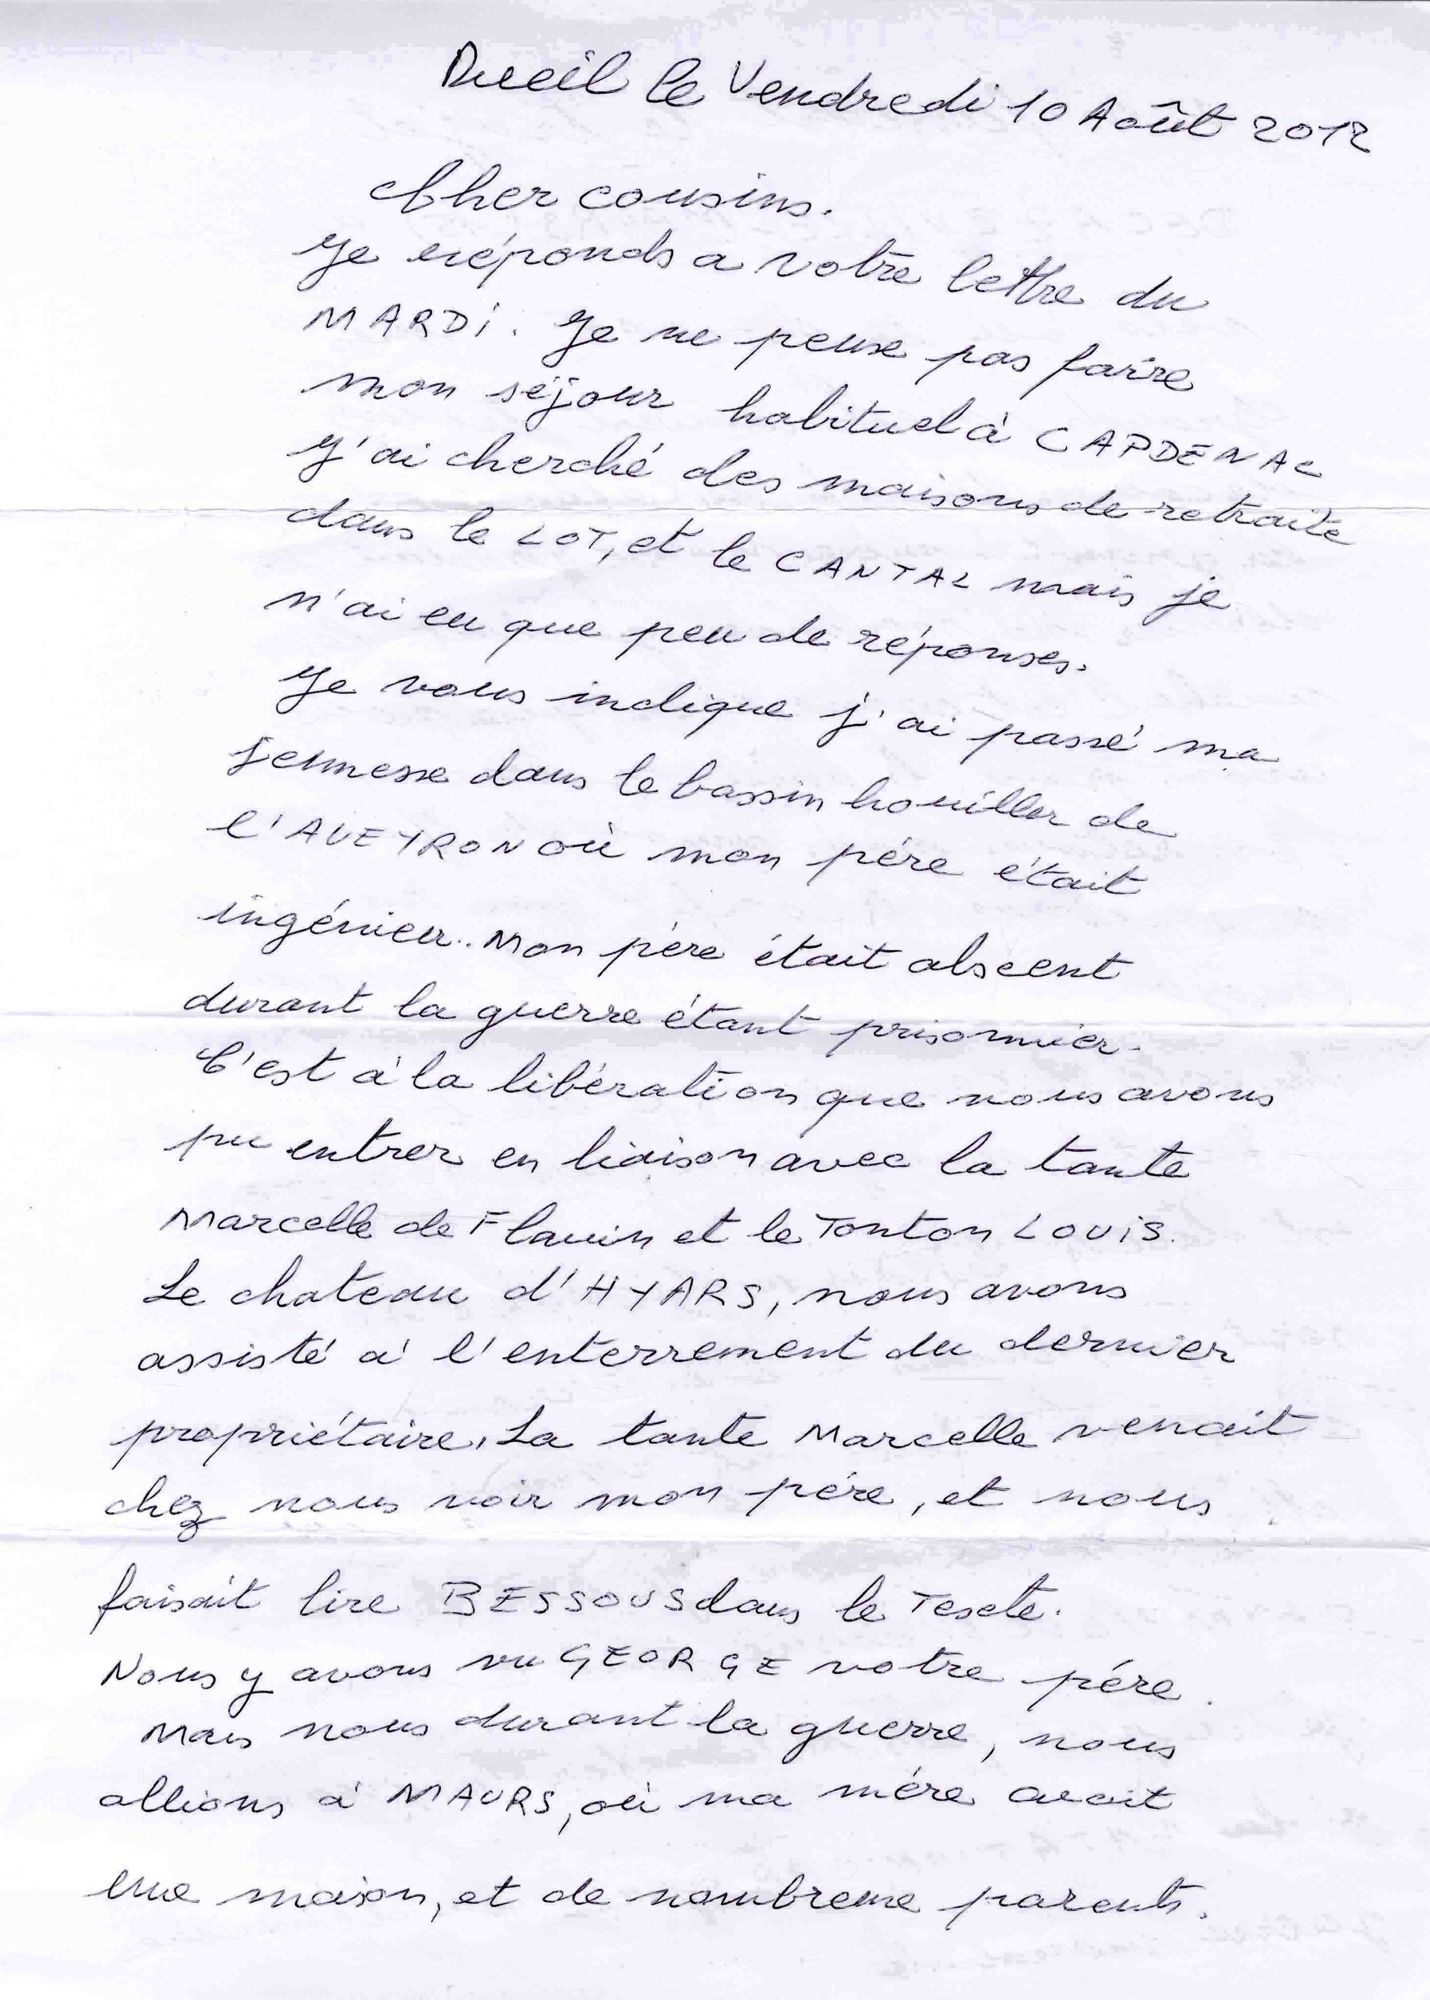 Rueil le Vendredi 10 Août 2012
Cher cousins.
Je réponds a votre lettre du
MARDi. Je ne pense pas faire
mon séjour habituel à CAPDENAC
J'ai cherché des maisons de retraite
dans le LOT, et le CANTAL mais je
n'ai eu que peu de réponses.
Je vous indique j'ai passé ma
jeunesse dans le bassin houiller de
l'AVEYRON où mon père était
ingénieur.. Mon père était abscent
durant la guerre étant prisonnier.
C'est à la libération que nous avons
pu entrer en liaison avec la tante
Marcelle de Flauin et le Tonton LOUiS.
Le chateau d'HYARS, nous avons
assisté à l'enterrement du dernier
propriétaire. La tante Marcelle venait
chez nous voir mon père, et nous
faisait lire BESSOUS dans le Texte.
Nous y avons vu GEORGE votre père.
Mais nous durant la guerre, nous
allions à MAURS, où ma mère avait
une maison, et de nombreux parents.